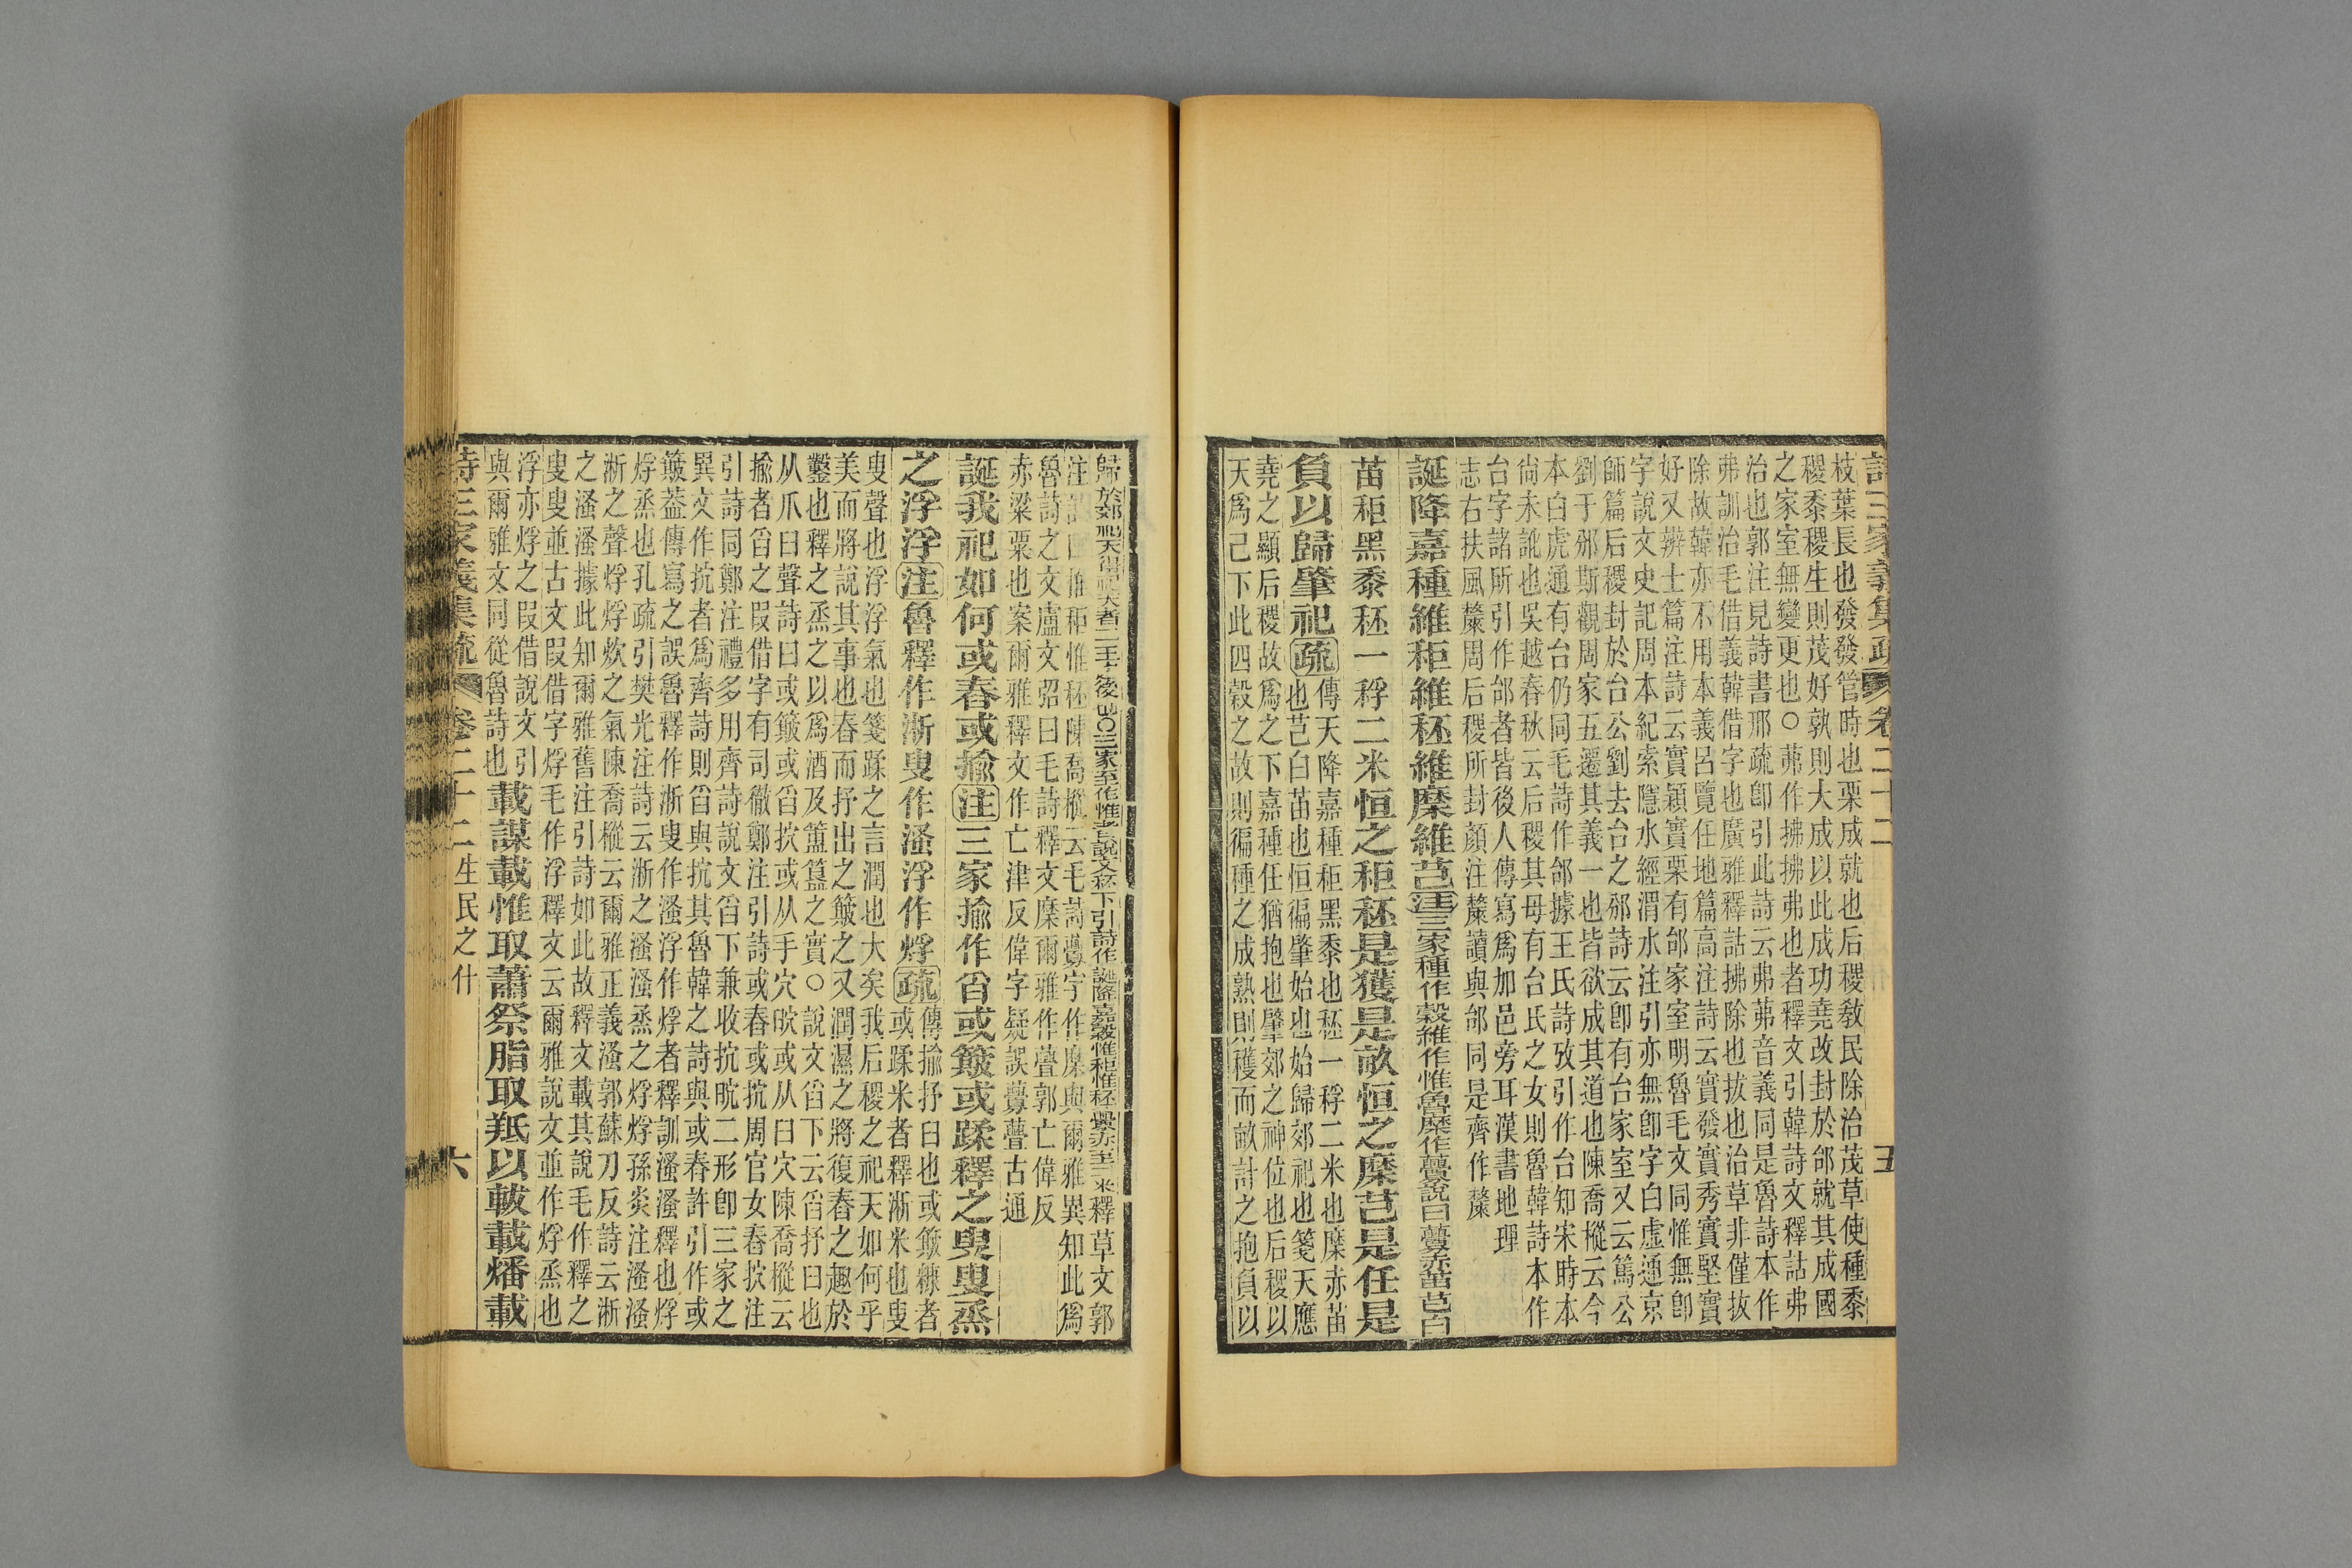 詩三家義集疏 卷二十二 五
枝葉長也發發管時也栗成就也后稷敎民除治茂草使種黍
稷黍稷生則茂好孰則大成以此成功堯改封於邰就其成國
之家室無變更也○茀作拂拂弗也者釋文引韓詩文釋詁弗
治也郭注見詩書邢疏卽引此詩云弗茀音義同是魯詩本作
弗訓治毛借義韓借字也廣雅釋詁拂除也拔也治草非僅拔
除故韓亦不用本義呂覽任地篇高注詩云實發實秀實堅實
好又辨士篇注詩云實穎實栗有邰家室明魯毛文同惟無卽
字說文史記周本紀索隱水經渭水注引亦無卽字白虎通京
師篇后稷封於台公劉去台之邠詩云卽有台家室又云篤公
劉于邠斯觀周家五遷其義一也皆欲成其道也陳喬樅云今
本白虎通有台仍同毛詩作邰據王氏詩攷引作台知宋時本
尙未譌也吳越春秋云后稷其母有台氏之女則魯韓詩本作
台字諸所引作邰者皆後人傳寫爲加邑旁耳漢書地理
志右扶風斄周后稷所封顏注斄讀與邰同是齊作斄
誕降嘉種維秬維秠維穈維芑注三家種作穀維作惟魯穈作虋說曰虋赤苗芑白
苗秬黑黍秠一稃二米恒之秬秠是獲是畝恒之穈芑是任是
負以歸肇祀疏傳天降嘉種秬黑黍也秠一稃二米也穈赤苗
也芑白苗也恒徧肇始也始歸郊祀也箋天應
堯之顯后稷故爲之下嘉種任猶抱也肇郊之神位也后稷以
天爲己下此四穀之故則徧種之成熟則穫而畝計之抱負以
歸於郊祀天得祀天者二王後也○三家至作惟者說文秠下引詩作誕降嘉穀惟秬惟秠虋赤至二米釋草文郭
魯詩之文盧文弨曰毛詩釋文穈爾雅作虋郭亡偉反
赤粱粟也案爾雅釋文作亡津反偉字疑誤虋亹古通
誕我祀如何或舂或揄注三家揄作舀或簸或蹂釋之叟叟烝
之浮浮注魯釋作淅叟作溞浮作烰疏傳揄抒臼也或簸糠者
或蹂米者釋淅米也叟
叟聲也浮浮氣也箋蹂之言潤也大矣我后稷之祀天如何乎
美而將說其事也舂而抒出之簸之又潤濕之將復舂之趣於
鑿也釋之烝之以爲酒及簠簋之實○說文舀下云舀抒臼也
从爪臼聲詩曰或簸或舀抭或从手穴㕟或从臼穴陳喬樅云
揄者舀之叚借字有司徹鄭注引詩或舂或抭周官女舂抭注
引詩同鄭注禮多用齊詩說文舀下兼收抭㕟二形卽三家之
異文作抗者爲齊詩則舀與抗其魯韓之詩與或舂許引作或
簸葢傳寫之誤魯釋作淅叟作溞浮作烰者釋訓溞溞釋也烰
烰烝也孔疏引樊光注詩云淅之溞溞烝之烰烰孫炎注溞溞
淅之聲烰烰炊之氣陳喬樅云爾雅正義溞郭蘇刀反詩云淅
之溞溞據此知爾雅舊注引詩如此故釋文載其說毛作釋之
叟叟並古文叚借字烰毛作浮釋文云爾雅說文並作烰烝也
浮亦烰之叚借說文引
與爾雅文同從魯詩也載謀載惟取蕭祭脂取羝以軷載燔載
詩三家義集疏 卷二十二 生民之什 六